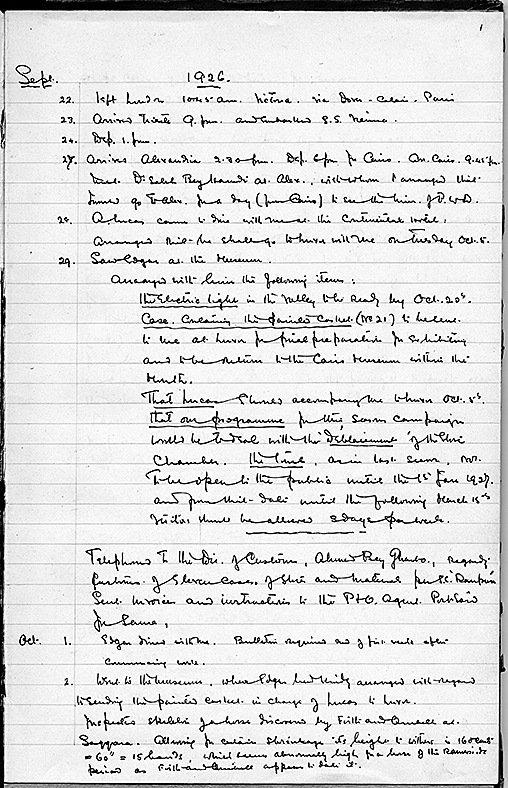 1
Sept. 1926.
22. left London 10.45 am. Victoria. via Dover - Calais - Paris
23. Arrived Trieste 9. pm. and embarked S.S.
24. Dep. 1. pm.
27. Arrived Alexandria 2.30 pm. Dep. 6 pm for Cairo. Arr. Cairo. 9.45 pm.
Saleh Bey Hamdi at Alex., with whom I arranged that
I go to Alex. for a day (from Cairo) to see the Min. of P.W.D.
28. A. Lucas came to dine with me at the Continental Hotel.
Arranged that he shall go to Luxor with me on Tuesday Oct. 5.
29. Saw Edgar at the Museum.
Arranged with him the following items:
The Electric light in the valley to be ready by Oct. 20th.
Case. Containing the painted casket (No 21) to be sent
to me at Luxor for final preparation for exhibition
and to be return to the Cairo Museum within the
month.
That Lucas should accompany me to Luxor Oct. 5th.
That our programme for this season campaign
would be to deal with the Déblaiement of the Store
Chamber. The tomb, as in last season, not
to be open to the public until the 1st Jan 1927.
and from that date until the following March 15th
visitors should be allowed 2 days per week.
Telephoned to the Dir. of Customs, Ahmed Bey, regarding
of Eleven cases of stores and material per S.S.
Sent invoices and instructions to the P & O. Agent Port Said
for same.
Oct. 1. Edgar dined with me. Bulletin required end of first week after
commencing work.
2. Went to the Museum, where Edgar had kindly arranged with regard
to sending the painted casket in charge of Lucas to Luxor.
Inspected skeleton of a horse discovered by Firth and Quibell at
Saqqara. Allowing for certain shrinkage its height to withers is 160 cent
= 60" = 15 hands, which seems abnormally high for a horse of the Ramesside
period as Firth and Quibell appear to date it.